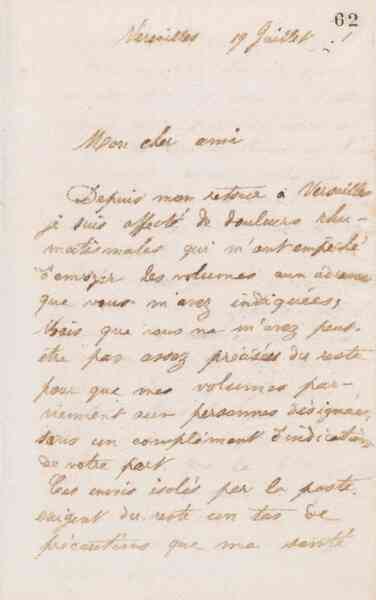 62
Versailles 19 Juillet
Mon cher ami
Depuis mon retour à Versailles
je suis affecté de douleurs rhu-
matismales qui m'ont empêché
d'envoyer des volumes aux adresses
que vous m'avez indiquées,
Mais que vous ne m'avez peut-
être pas assez précisées du reste
pour que mes volumes par-
viennent aux personnes désignées,
sans un complément d'indication
de votre part.
Ces envois isolés par la poste
exigent du reste un tas de
précautions que ma santé